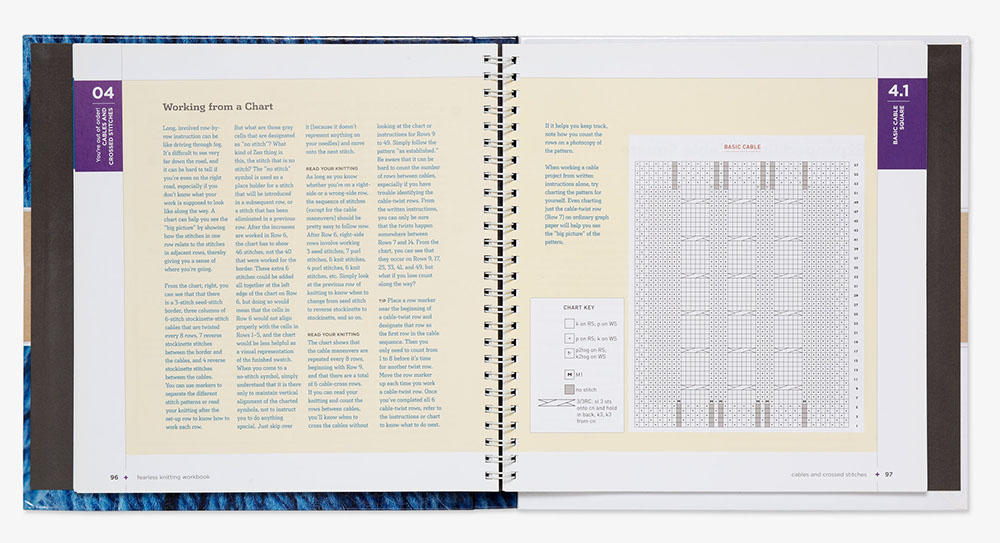 04
You're out of order!
CABLES AND
CROSSED STITCHES
Working from a Chart
Long, involved row-by-
row instruction can be
like driving through fog.
It's difficult to see very
far down the road, and
it can be hard to tell if
you're even on the right
road, especially if you
don't know what your
work is supposed to look
like along the way. A
chart can help you see the
"big picture" by showing
how the stitches in one
row relate to the stitches
in adjacent rows, thereby
giving you a sense of
where you're going.
From the chart, right, you
can see that that there
is a 3-stitch seed-stitch
border, three columns of
6-stitch stockinette-stitch
cables that are twisted
every 8 rows, 7 reverse
stockinette stitches
between the border and
the cables, and 4 reverse
stockinette stitches
between the cables.
You can use markers to
separate the different
stitch patterns or read
your knitting after the
set-up row to know how to
work each row.
But what are those gray
cells that are designated
as "no stitch"? What
kind of Zen thing is
this, the stitch that is no
stitch? The "no stitch"
symbol is used as a
place holder for a stitch
that will be introduced
in a subsequent row, or
a stitch that has been
eliminated in a previous
row. After the increases
are worked in Row 6,
the chart has to show
46 stitches, not the 40
that were worked for the
border. These extra 6
stitches could be added
all together at the left
edge of the chart on Row
6, but doing so would
mean that the cells in
Row 6 would not align
properly with the cells in
Rows 1–5, and the chart
would be less helpful as
a visual representation
of the finished swatch.
When you come to a
no-stitch symbol, simply
understand that it is there
only to maintain vertical
alignment of the charted
symbols, not to instruct
you to do anything
special. Just skip over
it (because it doesn't
represent anything on
your needles) and move
onto the next stitch.
READ YOUR KNITTING
As long as you know
whether you're on a right-
side or a wrong-side row,
the sequence of stitches
(except for the cable
maneuvers) should be
pretty easy to follow now.
After Row 6, right-side
rows involve working
3 seed stitches, 7 purl
stitches, 6 knit stitches,
4 purl stitches, 6 knit
stitches, etc. Simply look
at the previous row of
knitting to know when to
change from seed stitch
to reverse stockinette to
stockinette, and so on.
READ YOUR KNITTING
The chart shows that
the cable maneuvers are
repeated every 8 rows,
beginning with Row 9,
and that there are a total
of 6 cable-cross rows.
If you can read your
knitting and count the
rows between cables,
you'll know when to
cross the cables without
looking at the chart or
instructions for Rows 9
to 49. Simply follow the
pattern "as established."
Be aware that it can be
hard to count the number
of rows between cables,
especially if you have
trouble identifying the
cable-twist rows. From
the written instructions,
you can only be sure
that the twists happen
somewhere between
Rows 7 and 14. From the
chart, you can see that
they occur on Rows 9, 17,
25, 33, 41, and 49, but
what if you lose count
along the way?
TIP Place a row marker
near the beginning of
a cable-twist row and
designate that row as
the first row in the cable
sequence. Then you
only need to count from
1 to 8 before it's time
for another twist row.
Move the row marker
up each time you work
a cable-twist row. Once
you've completed all 6
cable-twist rows, refer to
the instructions or chart
to know what to do next.
96 + fearless knitting workbook
If it helps you keep track,
note how you count the
rows on a photocopy of
the pattern.
When working a cable
project from written
instructions alone, try
charting the pattern for
yourself. Even charting
just the cable-twist row
(Row 7) on ordinary graph
paper will help you see
the "big picture" of the
pattern.
CHART KEY
k on RS; p on WS
p on RS; k on WS
p2tog on RS;
k2tog on WS
M1
no stitch
3/3RC: sl 3 sts
onto cn and hold
in back, k3, k3
from cn
BASIC CABLE
4.1
BASIC CABLE
SQUARE
cables and crossed stitches + 97